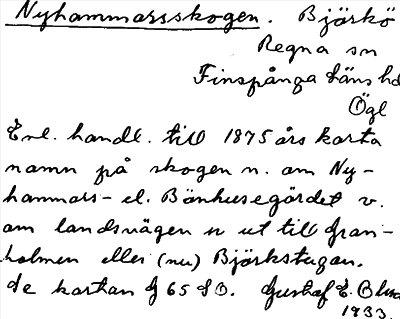 Nyhammarsskogen. Björkö
Regna sn
Finspånga läns hd
Ögl
Enl. handl. till 1875 års karta
namn på skogen n. om Ny-
hammars- el. Bänhusegärdet v.
om landsvägen n ut till Gran-
holmen eller (nu) Björkstugan.
Se kartan G 65 SO. Gustaf E.
1933.